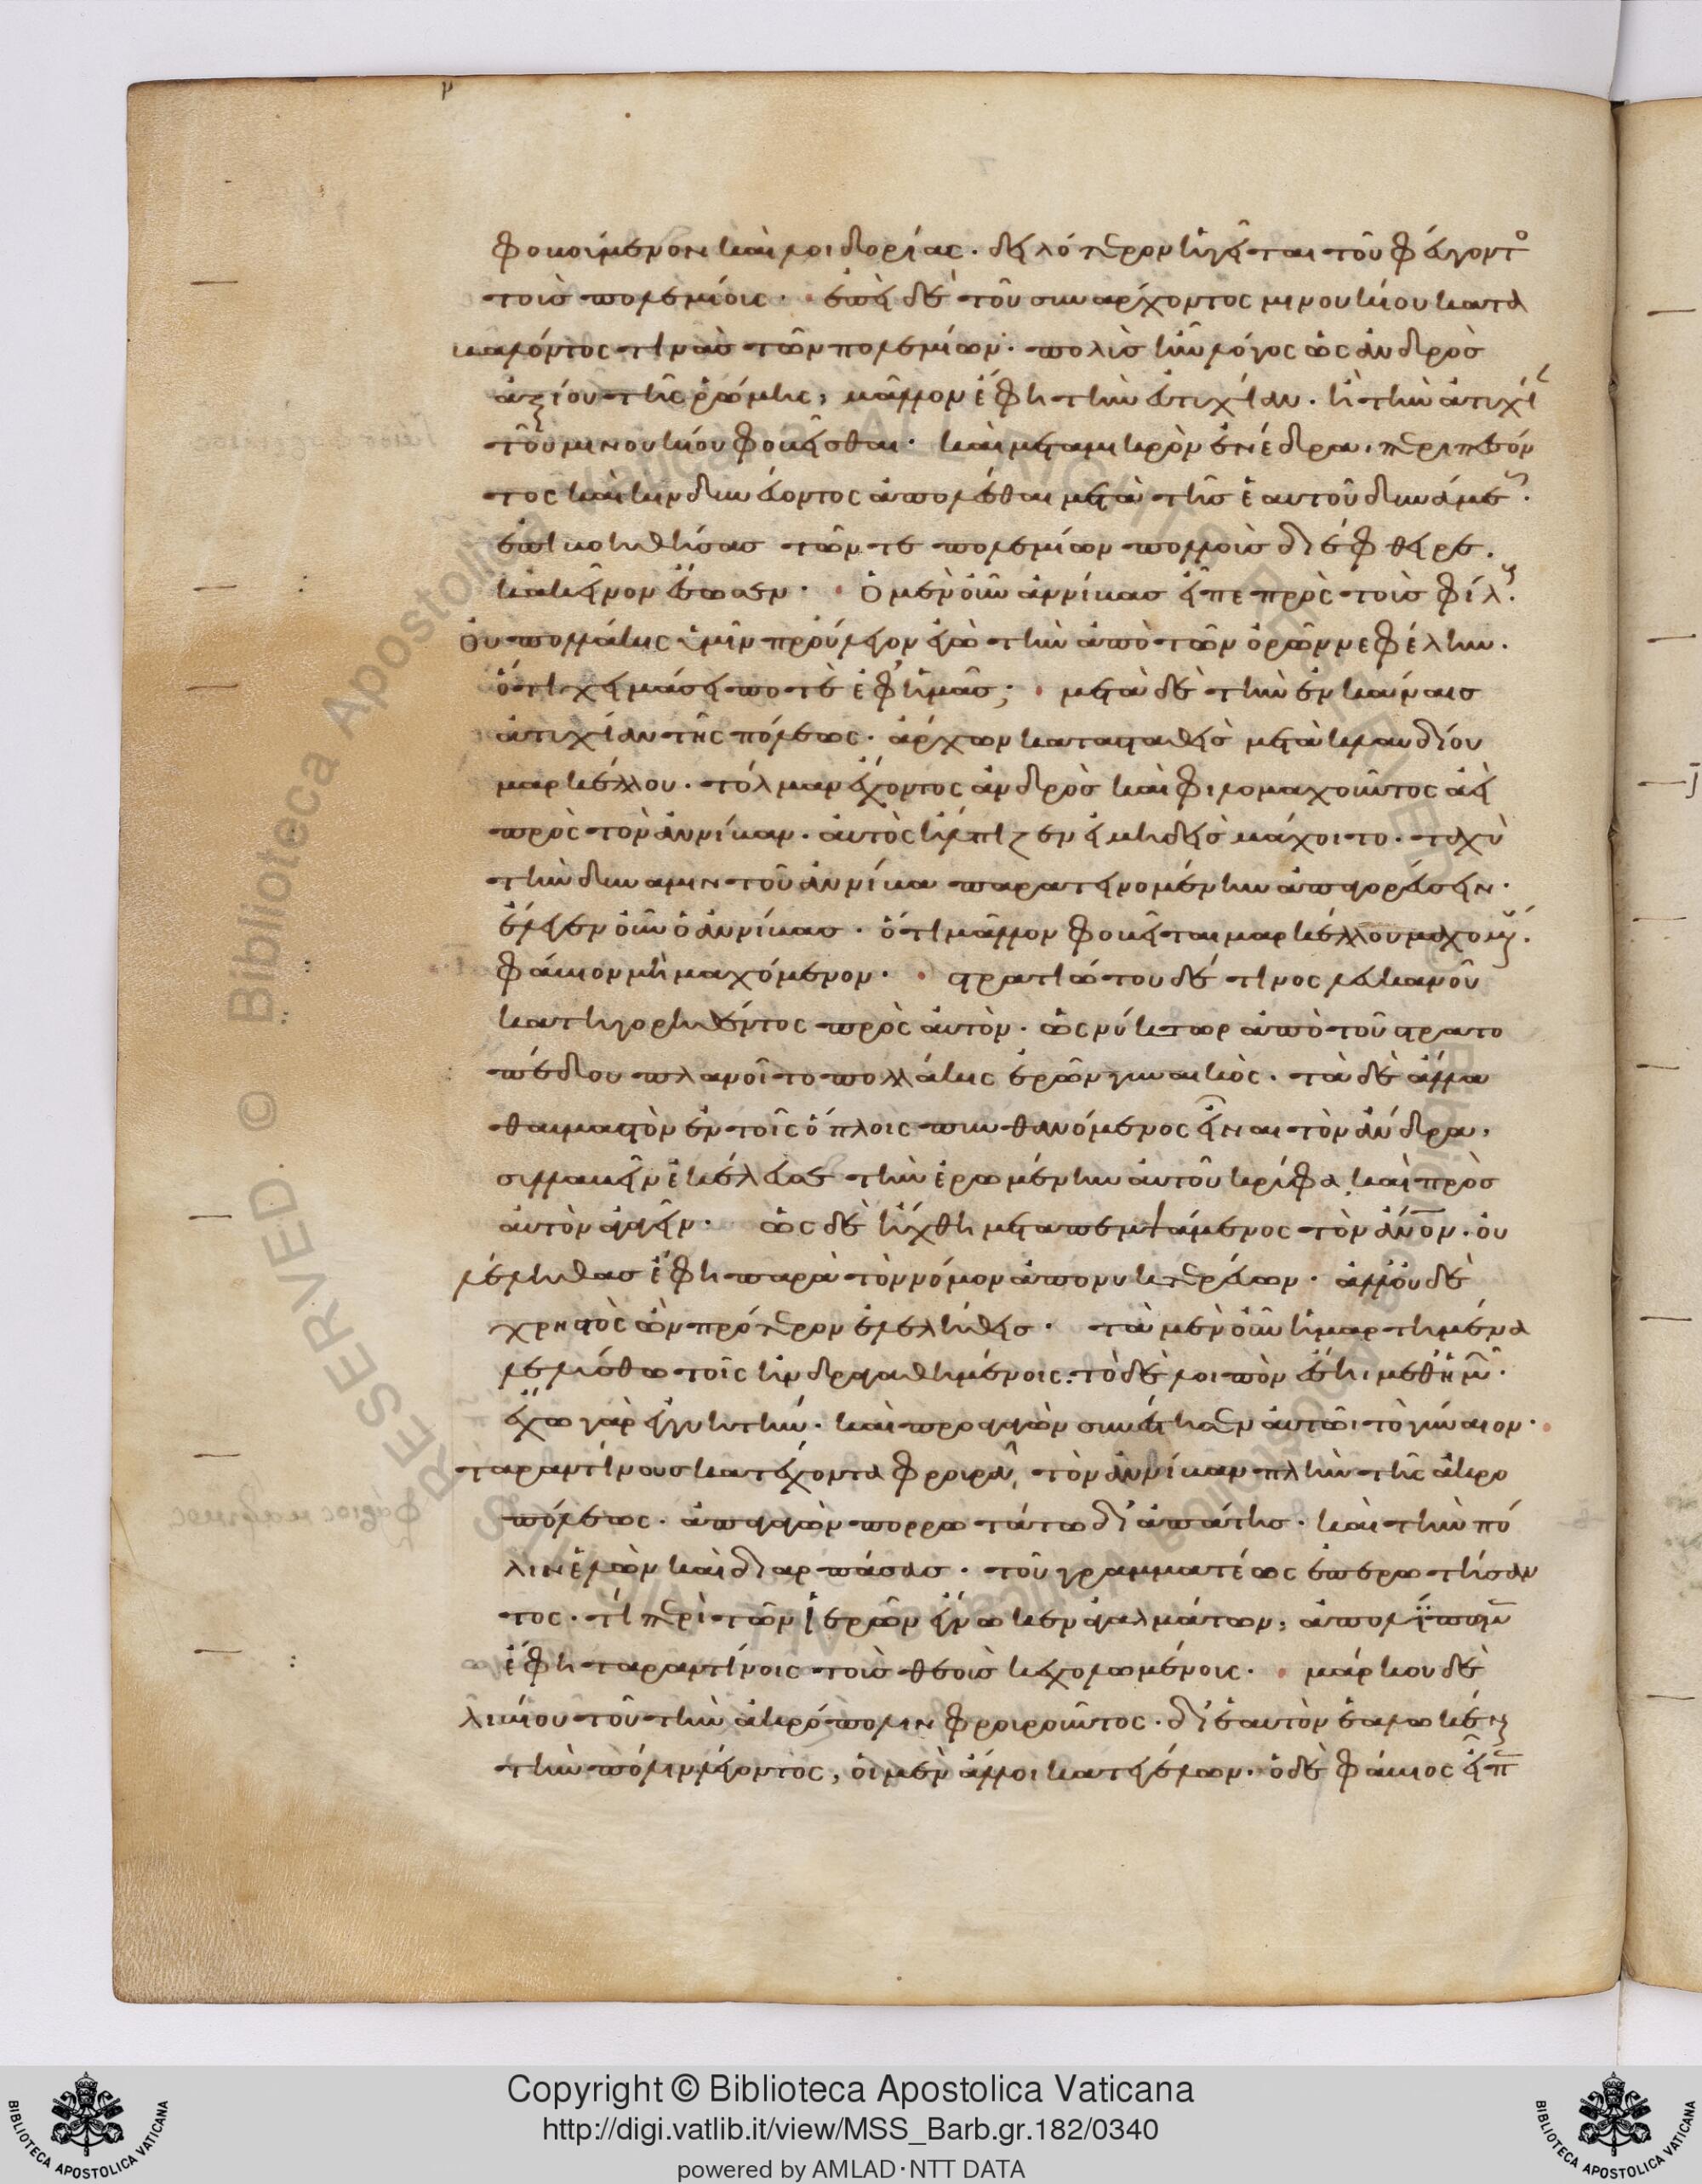 φοβούμενον καὶ λοιδορίας. δειλότερον ἡγεῖται τοῦ φεύγοντ
τοὺς πολεμίους. ἐπεὶ δὲ τοῦ συνάρχοντος μινουκίου κατα
βαλόντος τινὰς τῶν πολεμίων. πολὺς ἦν λόγος ὡς ἀνδρὸς
ἀξίου τῆς ῥώμης, μᾶλλον ἔφη τὴν εὐτυχίαν. ἢ τὴν ἀτυχί
τοῦ μινουκίου φοβεῖσθαι. καὶ μεταμικρὸν ἐνέδρα περιπεσόν
τος καὶ κινδυνεύοντος ἀπολέσθαι μετὰ τῆς ἑαυτοῦ δυνάμε.
ἐπιβοηθήσας τῶν τε πολεμίων πολλοὺς διέφθειρε.
κἀκεῖνον ἔσωσεν. ὁ μὲν οὖν ἀννίβας εἶπε πρὸς τοὺς φίλ.
Οὐ πολλάκις ὑμῖν προύλεγον ἐγὼ τὴν ἀπὸ τῶν ὀρῶν νεφέλην.
ὅτι χειμάσει ποτὲ ἐφ' ἡμᾶς; μετὰ δὲ τὴν ἐν κάνναις
ἀτυχίαν τῆς πόλεως. ἄρχων κατασταθεὶς μετὰ κλαυδίου
μαρκέλλου. τόλμαν ἔχοντος ἀνδρὸς καὶ φιλομαχοῦντος ἀεὶ
πρὸς τὸν ἀννίβαν. αὐτὸς ἤλπιζεν εἰ μηδεὶς μάχοιτο. ταχὺ
τὴν δύναμιν τοῦ ἀννίβα παρατεινομένην ἀπαγορεύσειν.
ἔλεγεν οὖν ὁ ἀννίβας. ὅτι μᾶλλον φοβεῖται μαρκέλλου μαχομ.
φάβιον μὴ μαχόμενον. στρατιώτου δέ τινος λευκανοῦ
κατηγορηθέντος πρὸς αὐτὸν. ὡς νύκτωρ ἀπὸ τοῦ στρατο
πέδου πλανοῖτο πολλάκις ἐρῶν γυναικὸς. τὰ δὲ ἄλλα
θαυμαστὸν ἐν τοῖς ὅπλοις πυνθανόμενος εἶναι τὸν ἄνδρα,
συλλαβεῖν ἐκέλευσε τὴν ἐρωμένην αὐτοῦ κρύφα καὶ πρὸς
αὐτὸν ἀγαγεῖν. ὡς δὲ ἤχθη μεταπεμψάμενος τὸν ἄνον. οὐ
λέληθας ἔφη παρὰ τὸν νόμον ἀπονυκτερεύων. ἀλλ' οὐδὲ
χρηστὸς ὢν πρότερον ἐλελήθεις. τὰ μὲν οὖν ἡμαρτημένα
λελύσθω τοῖς ἠνδραγαθημένοις. τὸ δὲ λοιπὸν ἔσῃ μεθ' ἡμῶν.
ἔχω γὰρ ἐγγυητήν. καὶ προαγαγὼν συνέστησεν αὐτῶι τὸ γύναιον.
ταραντίνους κατέχοντα φρουρᾶ τὸν ἀννίβαν πλὴν τῆς ἀκρο
πόλεως. ἀπαγαγὼν πορρωτάτω δι' ἀπάτης. καὶ τὴν πό
λιν ἑλὼν καὶ διαρπάσας. τοῦ γραμματέως ἐπερωτήσαν
τος. τί περὶ τῶν ἱερῶν ἔγνωκεν ἀγαλμάτων, ἀπολείπωμ
ἔφη ταραντίνοις τοὺς θεοὺς κεχολωμένους. μάρκου δὲ
λιβίου τοῦ τὴν ἀκρόπολιν φρουροῦντος. δι' ἑαυτὸν ἑαλωκέν
τὴν πόλιν λέγοντος, οἱ μὲν ἄλλοι κατεγέλων. ὁ δὲ φάβιος εἶπ
Copyright © Biblioteca Apostolica Vaticana
http://digi.vatlib.it/view/MSS_Barb.gr.182/0340
powered by AMLAD·NTT DATA